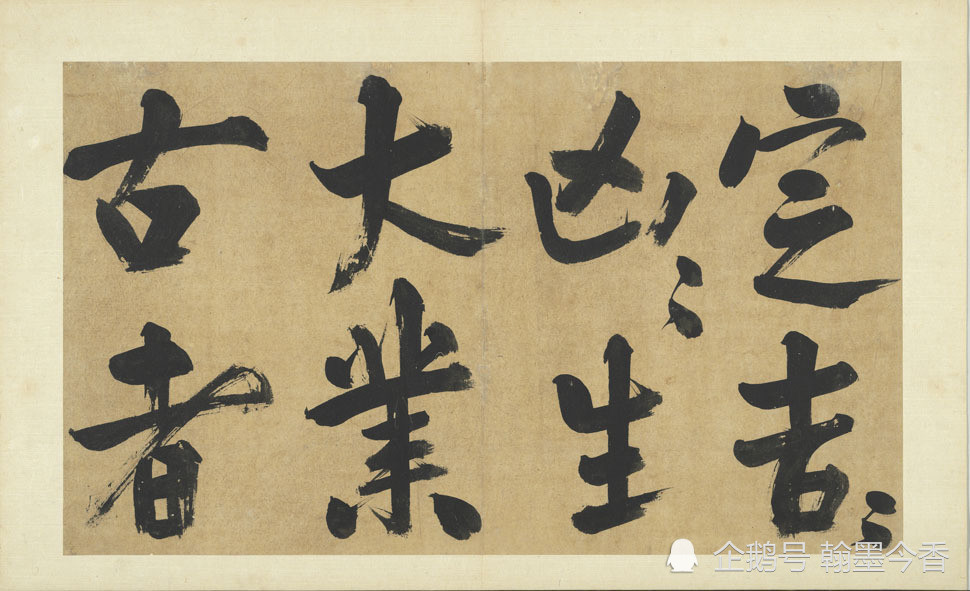 定吉〻
凶〻生
大業
古者
企鹅号 翰墨今香